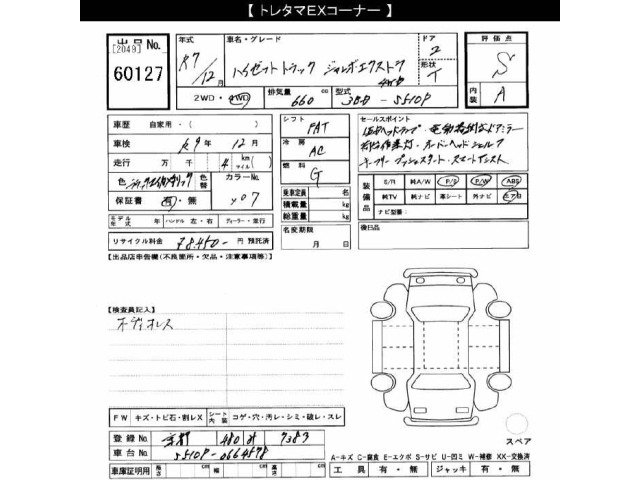 【 トレタマEXコーナー 】
出品No.
[2049]
60127
年式 車名・グレード ドア 評価点
R7 12月 ハイゼットトラック ジャンボエクストラ 4WD 2 S
形状 T
2WD・4WD 排気量 660 cc 型式 3BD - S510P 内装 A
車歴 自家用・( ) シフト FAT セールスポイント
車検 R9年 12月 冷房 AC LEDヘッドランプ・電動格納式ドアミラー
走行 万 千 4 km(マイル) 燃料 G 荷台作業灯・オーバーヘッドシェルフ
キーフリー プッシュスタート・スマートアシスト
色 色替 カラーNo.
X07
保証書 有・無
乗車定員 名
積載量 kg
総重量 kg
装備品 S/R 純A/W P/S P/W ABS
純TV 純ナビ 革シート 外ナビ エアB
ナビ型番:
モデル年式 年 ハンドル 左・右 ディーラー・並行
名変期限 月 日
後日品
リサイクル料金 ¥8,450- 円 預託済
【出品店車告欄(不良箇所・欠品・注意事項等)】
【検査員記入】
ボディオレス
FW キズ・トビ石・割レX シート内装 コゲ・穴・汚レ・シミ・破レ・スレ
登録No. 京都 480 7383
車台No. S510P-0664578
車庫証明用 長さ cm 幅 cm 高さ cm
スペア
A-キズ C-腐食 E-エクボ S-サビ U-凹ミ W-補修 XX-交換済
工具 有・無 ジャッキ 有・無